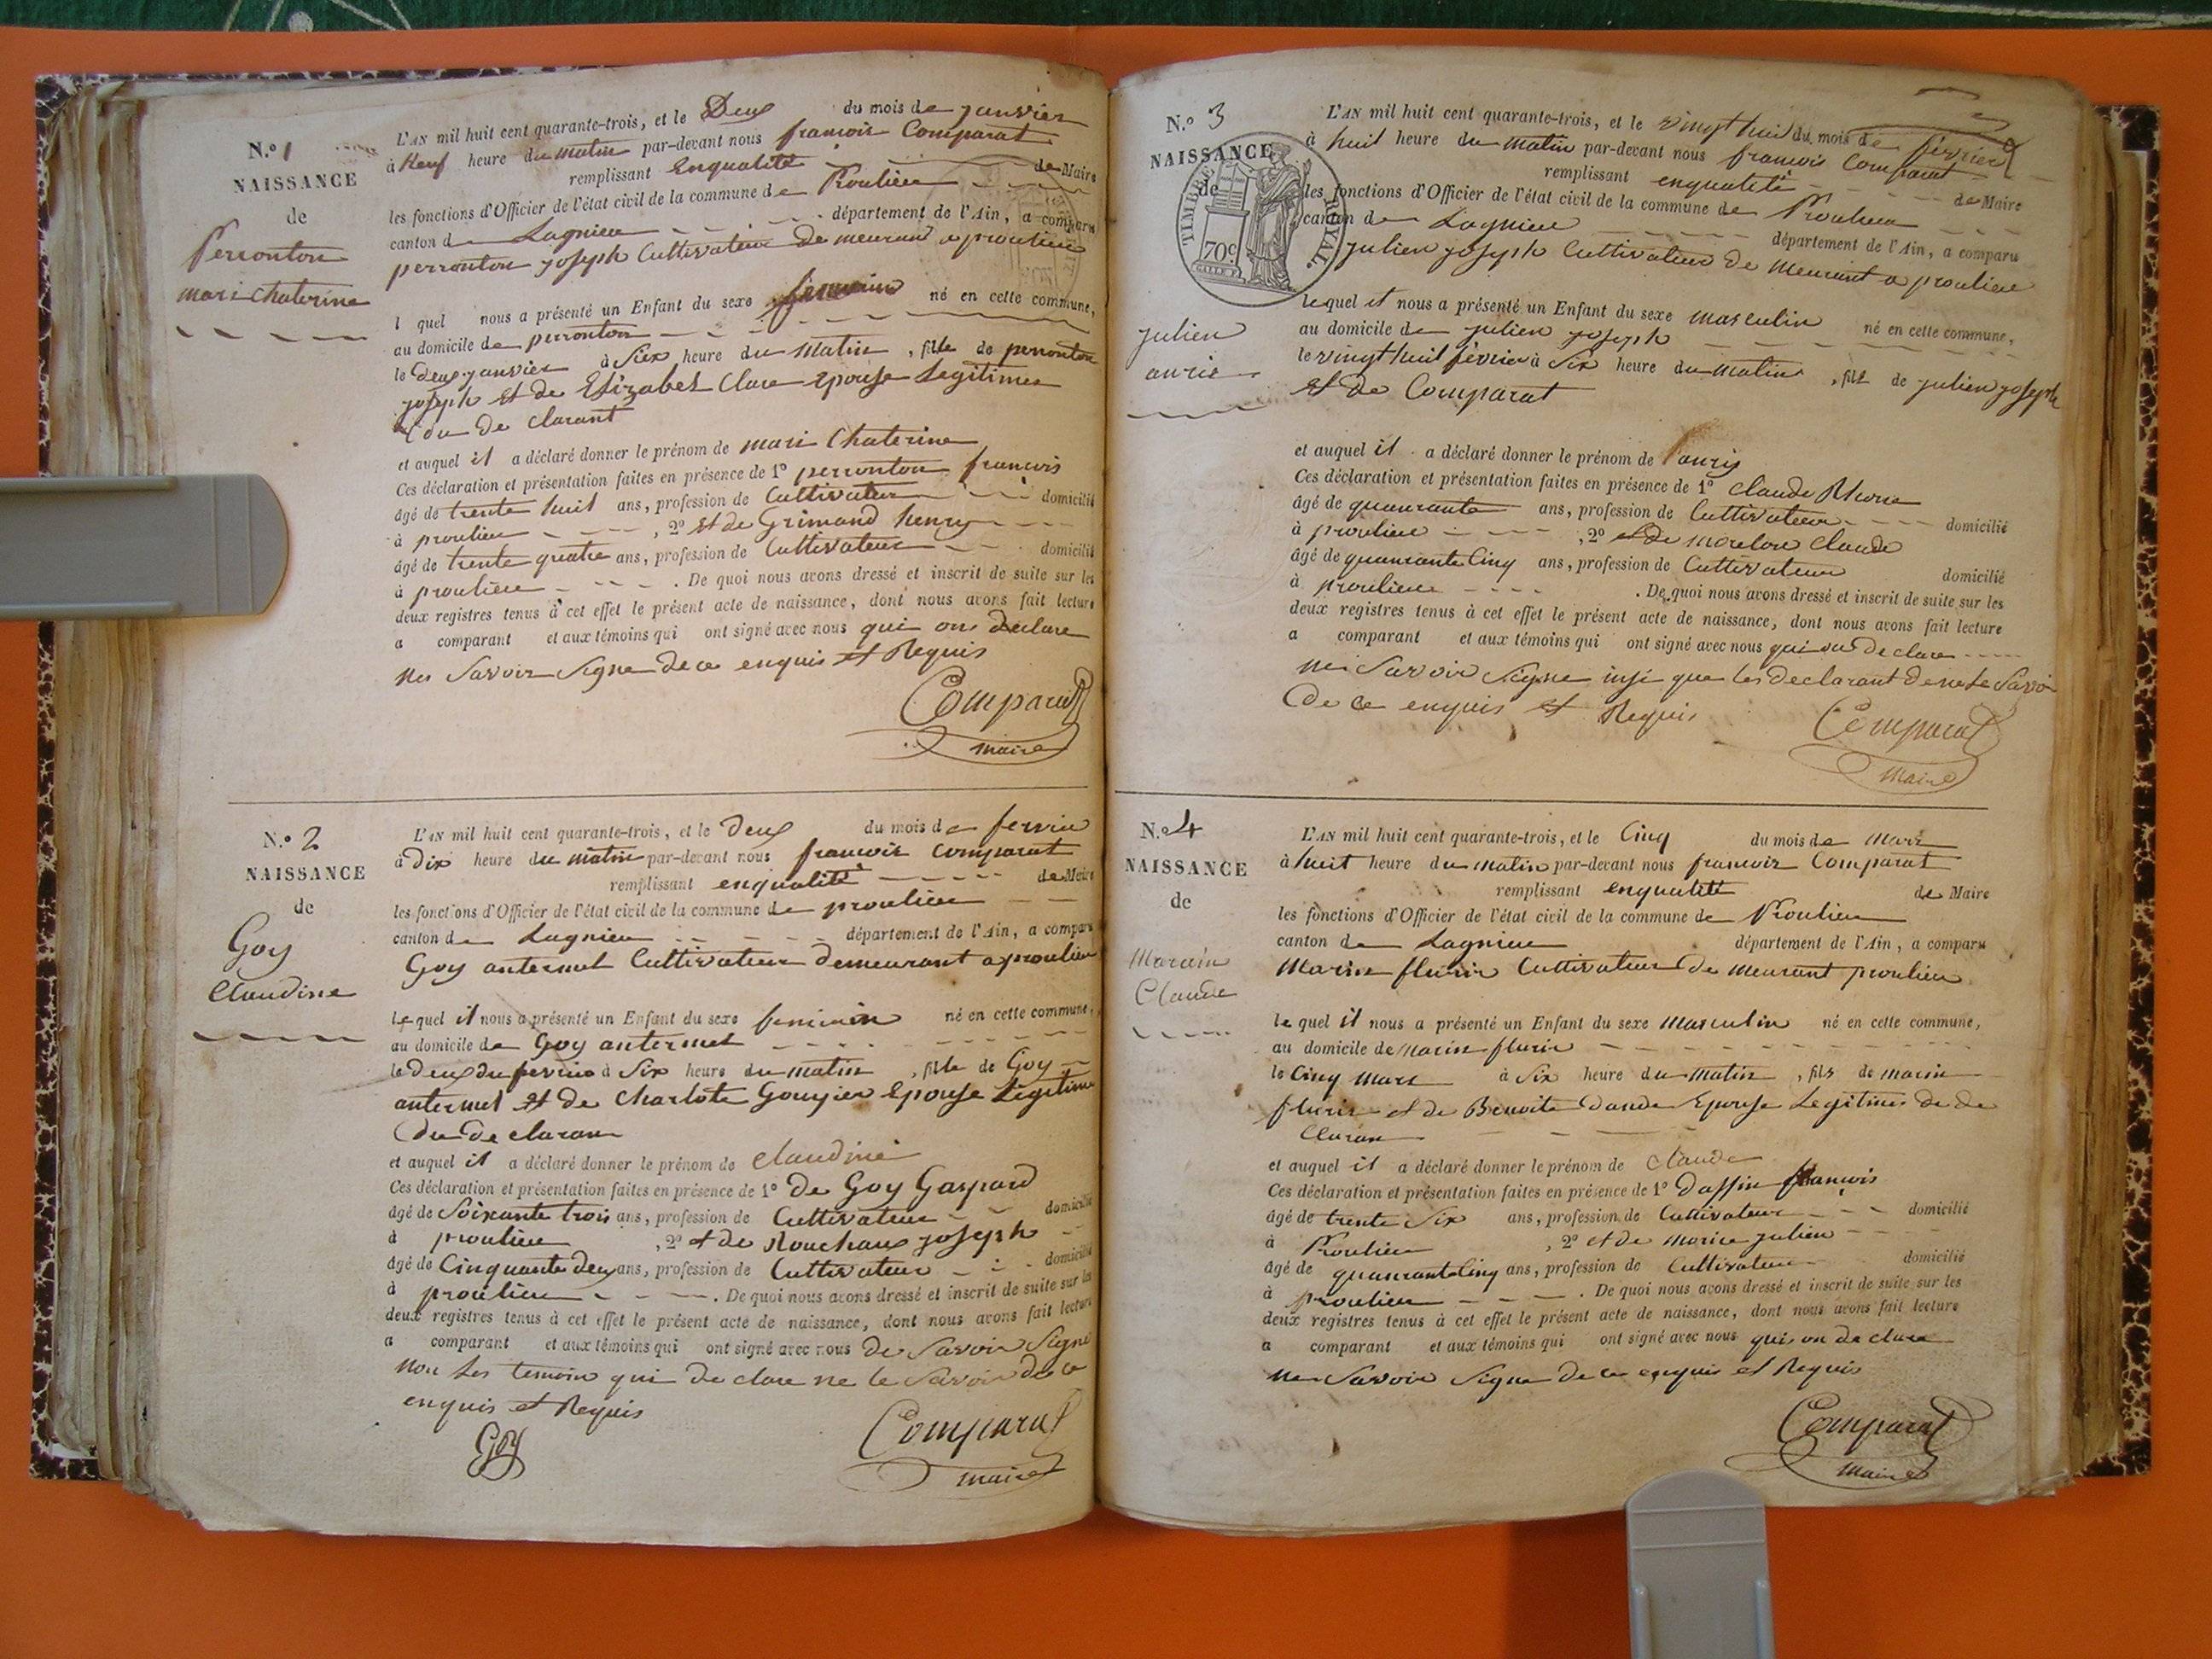 N.º 1
NAISSANCE
de
Perronton
mari Chaterine
L'AN mil huit cent quarante-trois, et le Deux du mois de janvier
à Neuf heure du matin par-devant nous francois Comparat
remplissant Enqualité de Maire
les fonctions d'Officier de l'état civil de la commune de Proulieu
canton de Lagnieu département de l'Ain, a comparu
perronton joseph Cultivateur De meurant a proulieu
l quel nous a présenté un Enfant du sexe feminin né en cette commune,
au domicile de perronton
le deux janvier à Six heure du Matin, fille de perronton
joseph et de Elizabet Clare Epouse Legitimes
du de clarant
et auquel il a déclaré donner le prénom de mari Chaterine
Ces déclaration et présentation faites en présence de 1º perronton francois
âgé de trente huit ans, profession de Cultivateur domicilié
à proulieu, 2º et de Grimand henry
âgé de trente quatre ans, profession de Cultivateur domicilié
à proulieu. De quoi nous avons dressé et inscrit de suite sur les
deux registres tenus à cet effet le présent acte de naissance, dont nous avons fait lecture
a comparant et aux témoins qui ont signé avec nous qui ons Declare
nes Savoir Signe de ce enquis et Requis
Comparat
maire
N.º 2
NAISSANCE
de
Goy
Claudine
L'AN mil huit cent quarante-trois, et le deux du mois de
à Dix heure du matin par-devant nous francois Comparat
remplissant enqualité de Maire
les fonctions d'Officier de l'état civil de la commune de proulieu
canton de Lagnieu département de l'Ain, a comparu
Goy antermet Cultivateur demeurant a proulieu
le quel il nous a présenté un Enfant du sexe feminin né en cette commune,
au domicile de Goy antermet
le deux du à Six heure du matin, fille de Goy
antermet et de Charlote Goujier Epouse Legitime
du de claran
et auquel il a déclaré donner le prénom de Claudine
Ces déclaration et présentation faites en présence de 1º de Goy Gaspard
âgé de Soixante trois ans, profession de Cultivateur domicilié
à proulieu, 2º et de Rouchaux joseph
âgé de Cinquante deux ans, profession de Cultivateur domicilié
à proulieu. De quoi nous avons dressé et inscrit de suite sur les
deux registres tenus à cet effet le présent acte de naissance, dont nous avons fait lecture
a comparant et aux témoins qui ont signé avec nous de Savoir Signe
non les temoin qui de clare ne le Savoir de ce
enquis et Requis
Goy
Comparat
maire
N.º 3
NAISSANCE
de
TIMBRE ROYAL
70c
julien
L'AN mil huit cent quarante-trois, et le vingt huit du mois de février
à huit heure du matin par-devant nous francois Comparat
remplissant enqualité de Maire
les fonctions d'Officier de l'état civil de la commune de Proulieu
canton de Lagnieu département de l'Ain, a comparu
julien joseph Cultivateur De meurant a proulieu
le quel il nous a présenté un Enfant du sexe masculin né en cette commune,
au domicile de julien joseph
le vingt huit février à Six heure du matin, fils de julien joseph
et De Comparat
et auquel il a déclaré donner le prénom de
Ces déclaration et présentation faites en présence de 1º Claude
âgé de quanrante ans, profession de Cultivateur domicilié
à proulieu, 2º et de morelon Claude
âgé de quanrante Cinq ans, profession de Cultivateur domicilié
à proulieu. De quoi nous avons dressé et inscrit de suite sur les
deux registres tenus à cet effet le présent acte de naissance, dont nous avons fait lecture
a comparant et aux témoins qui ont signé avec nous qui ons De clare
nes Savoir Signe que les declarant de ne le Savoir
De ce enquis et Requis
Comparat
maire
N.º 4
NAISSANCE
de
Marain
Claude
L'AN mil huit cent quarante-trois, et le Cinq du mois de Mars
à huit heure du matin par-devant nous francois Comparat
remplissant enqualité de Maire
les fonctions d'Officier de l'état civil de la commune de Proulieu
canton de Lagnieu département de l'Ain, a comparu
Marin flurir Cultivateur De meurant proulieu
le quel il nous a présenté un Enfant du sexe Masculin né en cette commune,
au domicile de Marin flurir
le Cinq Mars à Six heure du Matin, fils de marin
flurir et de Benoite Dande Epouse Legitimes du de
Claran
et auquel il a déclaré donner le prénom de Claude
Ces déclaration et présentation faites en présence de 1º Daffin françois
âgé de trente Six ans, profession de Cultivateur domicilié
à Proulieu, 2º et de morice julien
âgé de quanrante Cinq ans, profession de Cultivateur domicilié
à proulieu. De quoi nous avons dressé et inscrit de suite sur les
deux registres tenus à cet effet le présent acte de naissance, dont nous avons fait lecture
a comparant et aux témoins qui ont signé avec nous quis on de clare
nes Savoir Signe de ce enquis et Requis
Comparat
maire